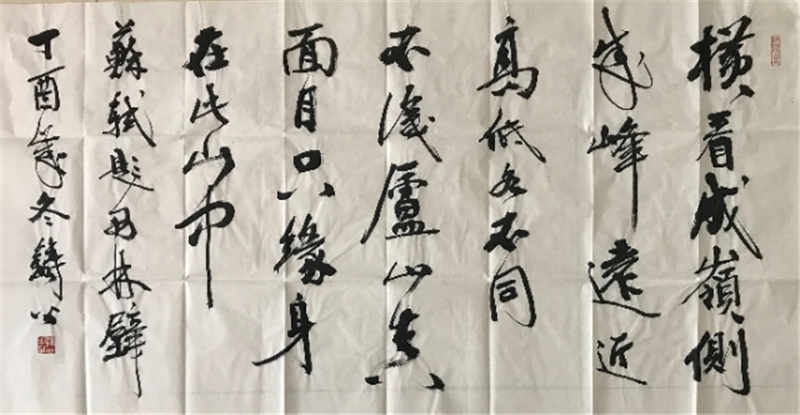 横看成嶺側
成峰遠近
高低各不同
不識廬山真
面目只緣身
在此山中
蘇軾題西林壁
丁酉歲冬